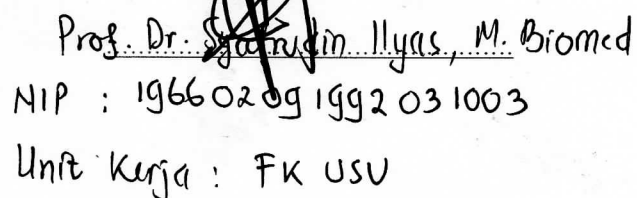 Prof. Dr. Syafrudin Ilyas, M. Biomed
NIP : 19660209 1992 03 1003
Unit Kerja : FK USU